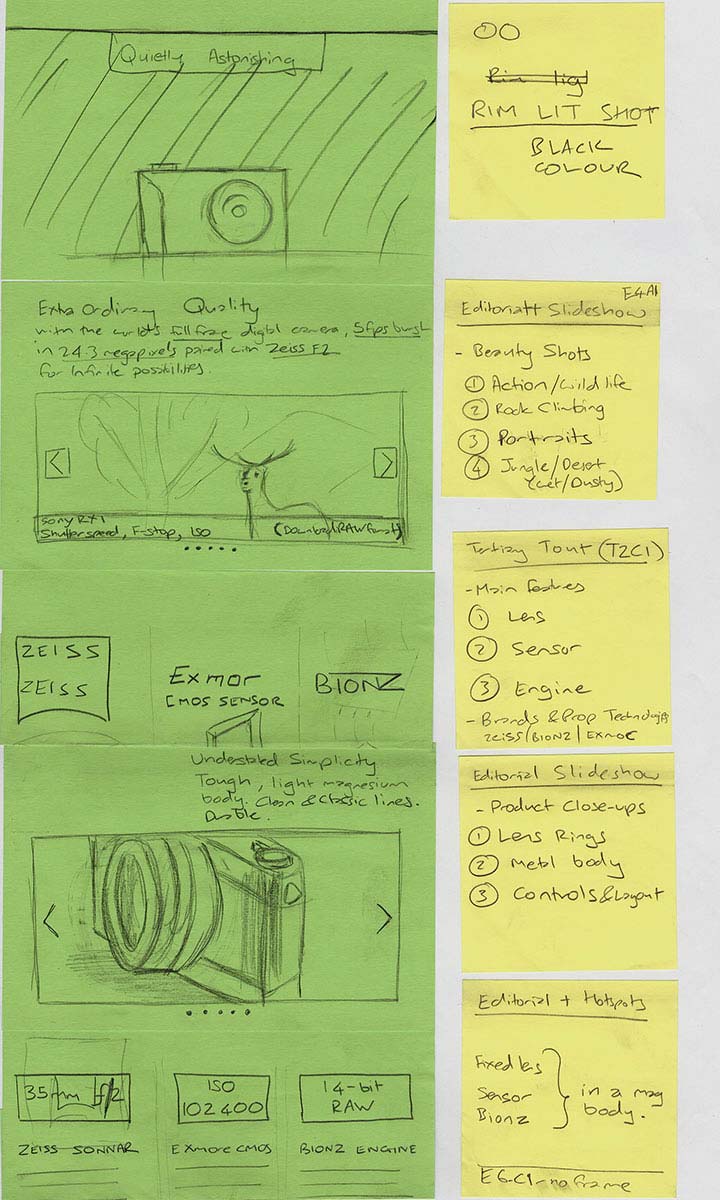 Quietly Astonishing
RIM LIT SHOT
BLACK
COLOUR
Extra Ordinary Quality
with the world's full frame digital camera, 5fps burst
in 24.3 megapixels paired with Zeiss F2
for infinite possibilities.
Sony RX1
Shutterspeed, F-stop, ISO
(Download RAW format)
E4A1
Editorial Slideshow
- Beauty Shots
① Action/wild life
② Rock Climbing
③ Portraits
④ Jungle/Desert
(Wet/Dusty)
ZEISS
ZEISS
Exmor
CMOS SENSOR
BIONZ
Tertiary Tout (T2C1)
- Main features
① Lens
② Sensor
③ Engine
- Brands & Prop Technologies
ZEISS/BIONZ/EXMOR
Understated Simplicity
Tough, light magnesium
body. Clean & Classic lines.
Durable.
Editorial Slideshow
- Product Close-ups
① Lens Rings
② Metal body
③ Controls & Layout
35mm f/2
ISO
102400
14-bit
RAW
ZEISS SONNAR
Exmore CMOS
BIONZ ENGINE
Editorial + Hotspots
Fixed lens
Sensor
Bionz
in a mag
body.
E6-C1-no frame